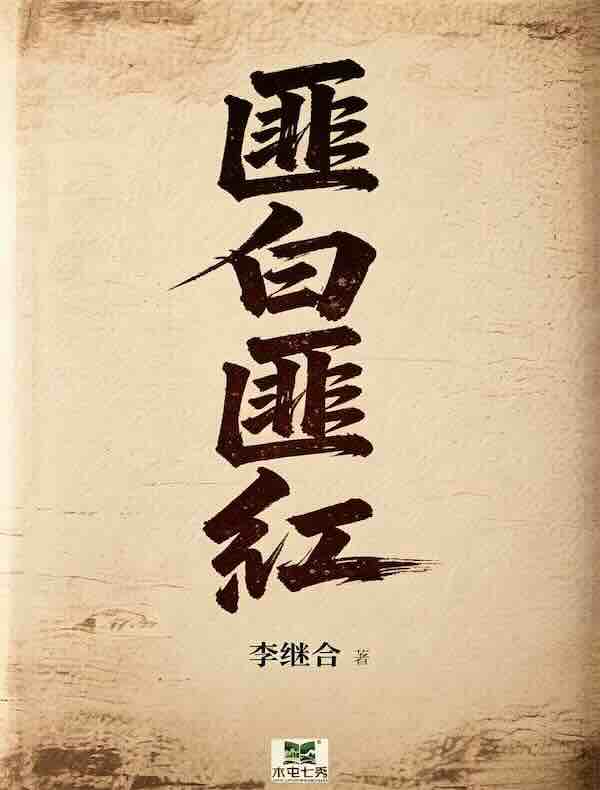 匪白匪紅
李继合 著
水屯七秀